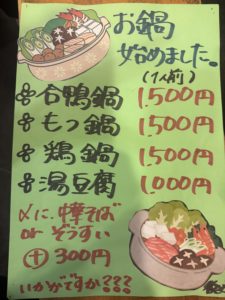 お鍋
始めました。
(1人前)
合鴨鍋 1,500円
もつ鍋 1,500円
鶏鍋 1,500円
湯豆腐 1,000円
〆に、中華そば
or ぞうすい
⊕300円
いかがですか???